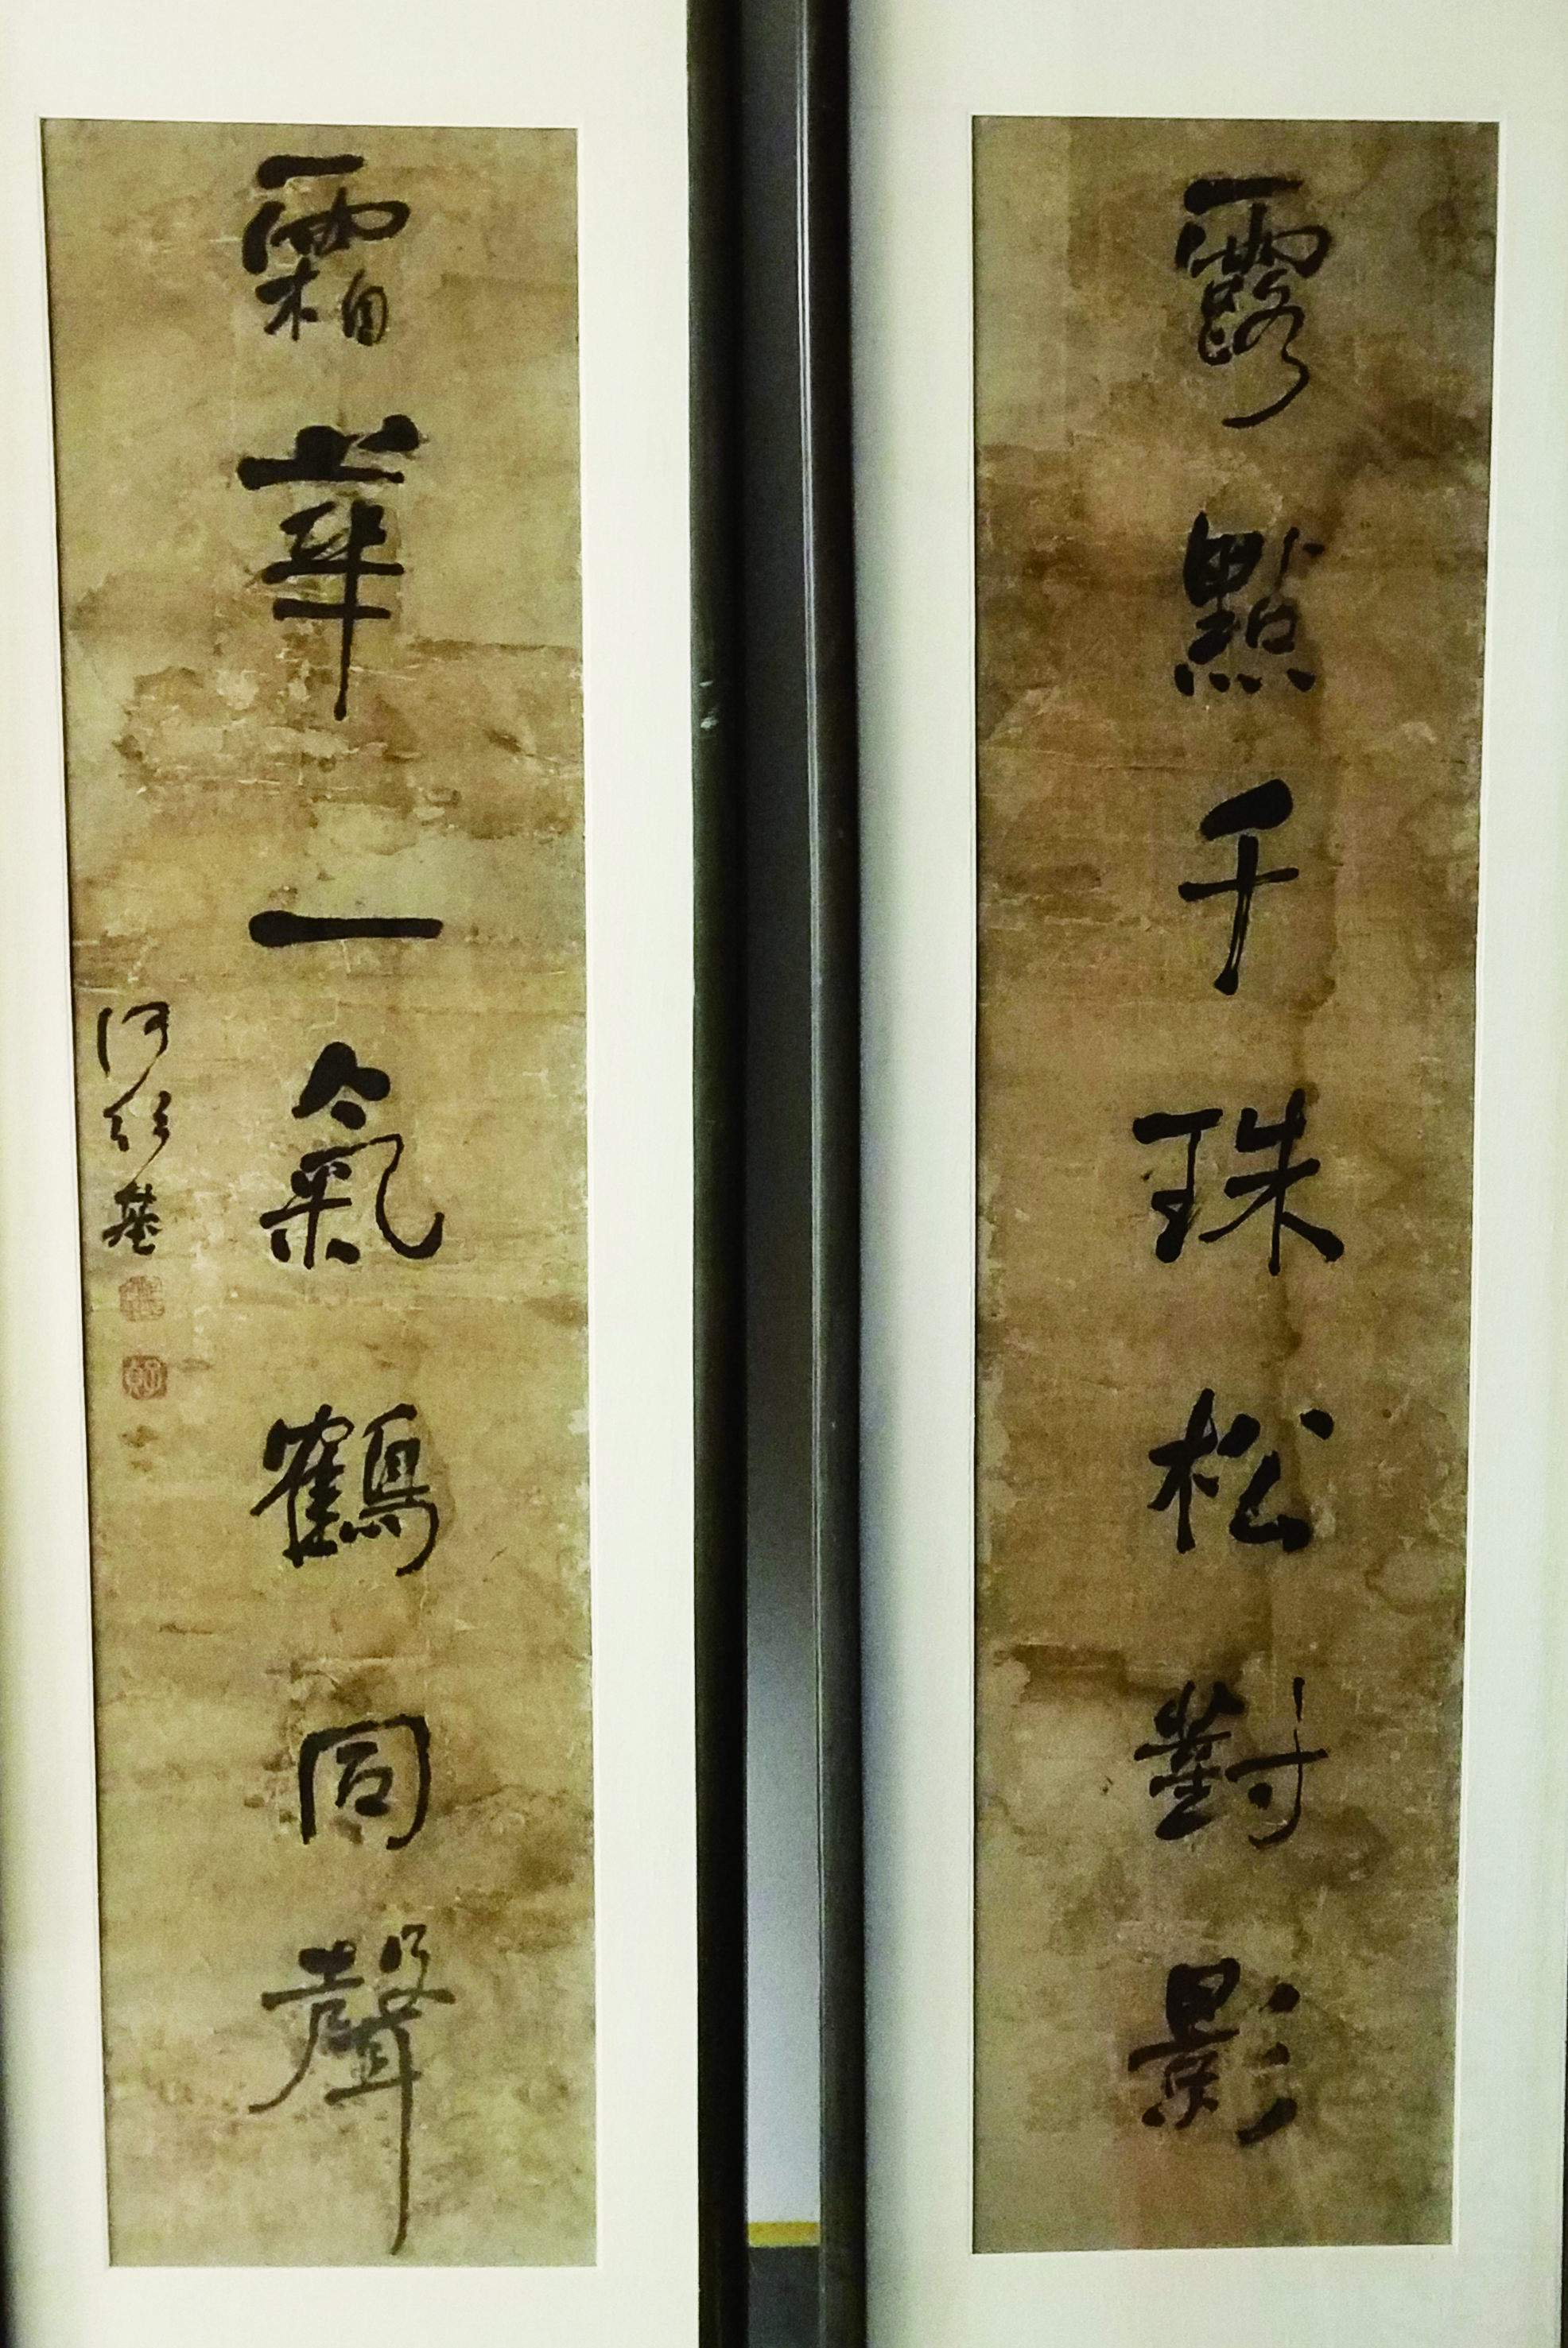 露點千珠松對影
霜華一氣鶴同聲
何紹基